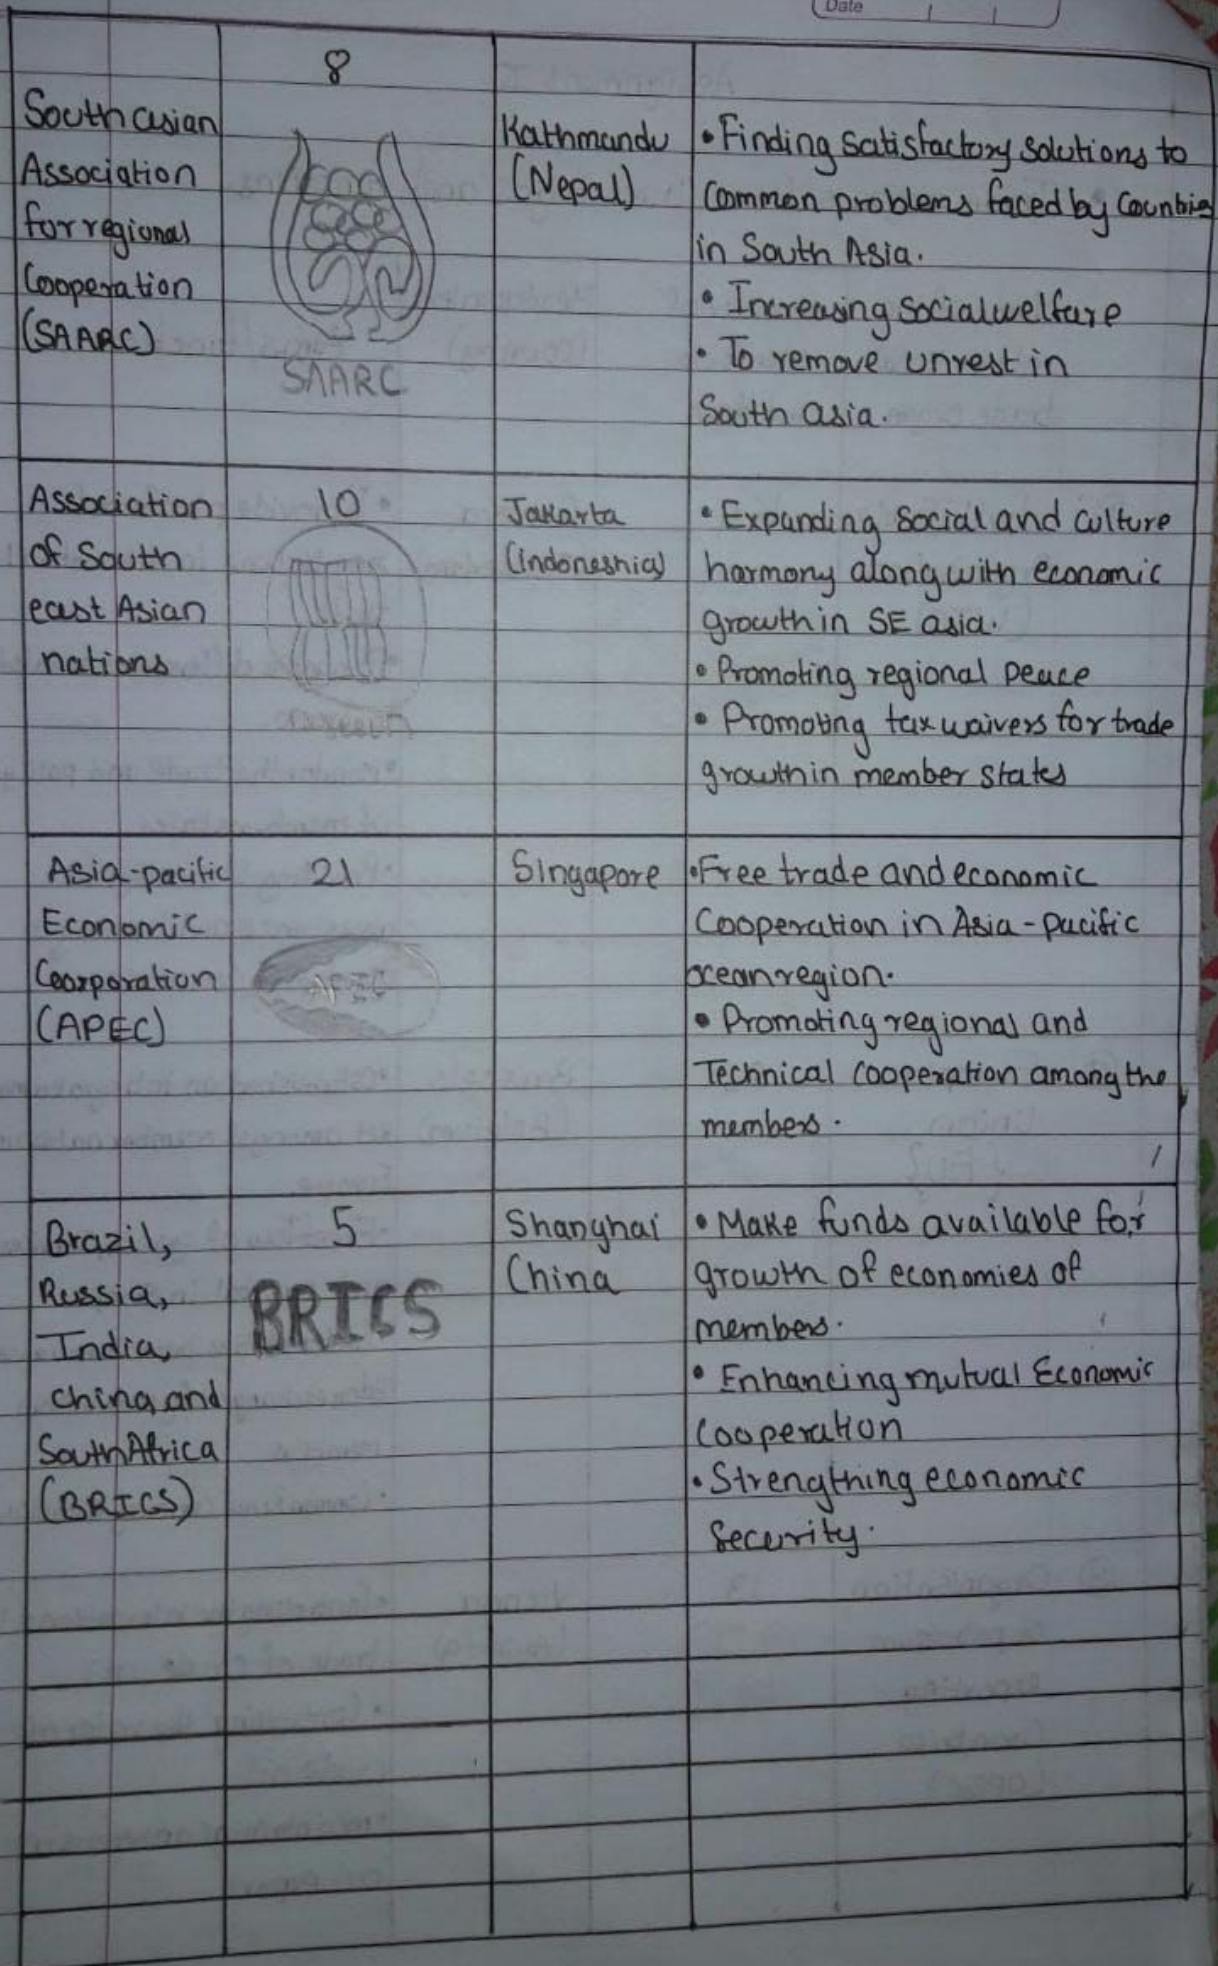 Date
8
South asian
Association
for regional
Cooperation
(SAARC)
SAARC
Kathmandu
(Nepal)
• Finding satisfactory solutions to
common problems faced by Countries
in South Asia.
• Increasing social welfare
• To remove unrest in
South asia.
Association
of South
east Asian
nations
10
Jakarta
(indoneshia)
• Expanding social and culture
harmony along with economic
growth in SE asia.
• Promoting regional peace
• Promoting tax waivers for trade
growth in member states
Asia-pacific
Economic
Coorporation
(APEC)
21
APEC
Singapore
• Free trade and economic
Cooperation in Asia-pacific
ocean region.
• Promoting regional and
Technical cooperation among the
members.
Brazil,
Russia,
India,
china, and
South Africa
(BRICS)
5
BRICS
Shanghai
China
• Make funds available for
growth of economies of
members.
• Enhancing mutual Economic
cooperation
• Strengthing economic
security.